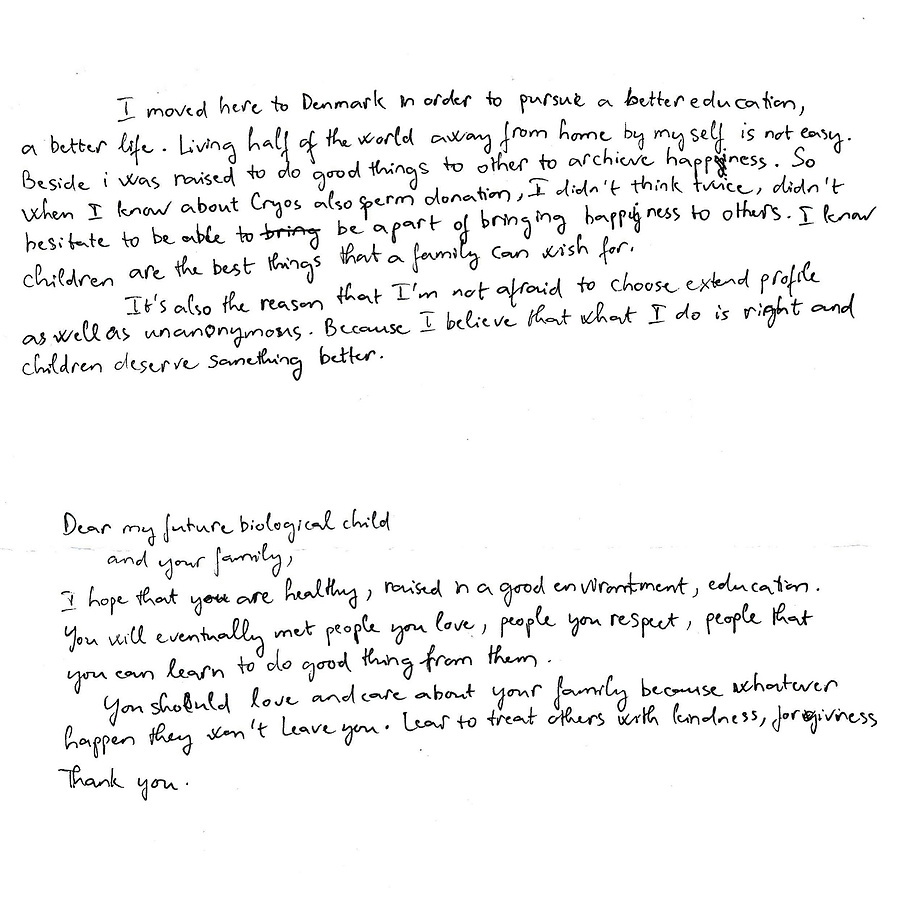 I moved here to Denmark in order to pursue a better education,
a better life. Living half of the world away from home by myself is not easy.
Beside i was raised to do good things to other to archieve happiness. So
when I know about Cryos also sperm donation, I didn't think twice, didn't
hesitate to be able to bring be a part of bringing happiness to others. I know
children are the best things that a family can wish for.
It's also the reason that I'm not afraid to choose extend profile
as well as unanonymous. Because I believe that what I do is right and
children deserve something better.
Dear my future biological child
and your family,
I hope that you are healthy, raised in a good environtment, education.
You will eventually met people you love, people you respect, people that
you can learn to do good thing from them.
You should love and care about your family because whatever
happen they won't leave you. Lear to treat others with kindness, forgiviness
Thank you.